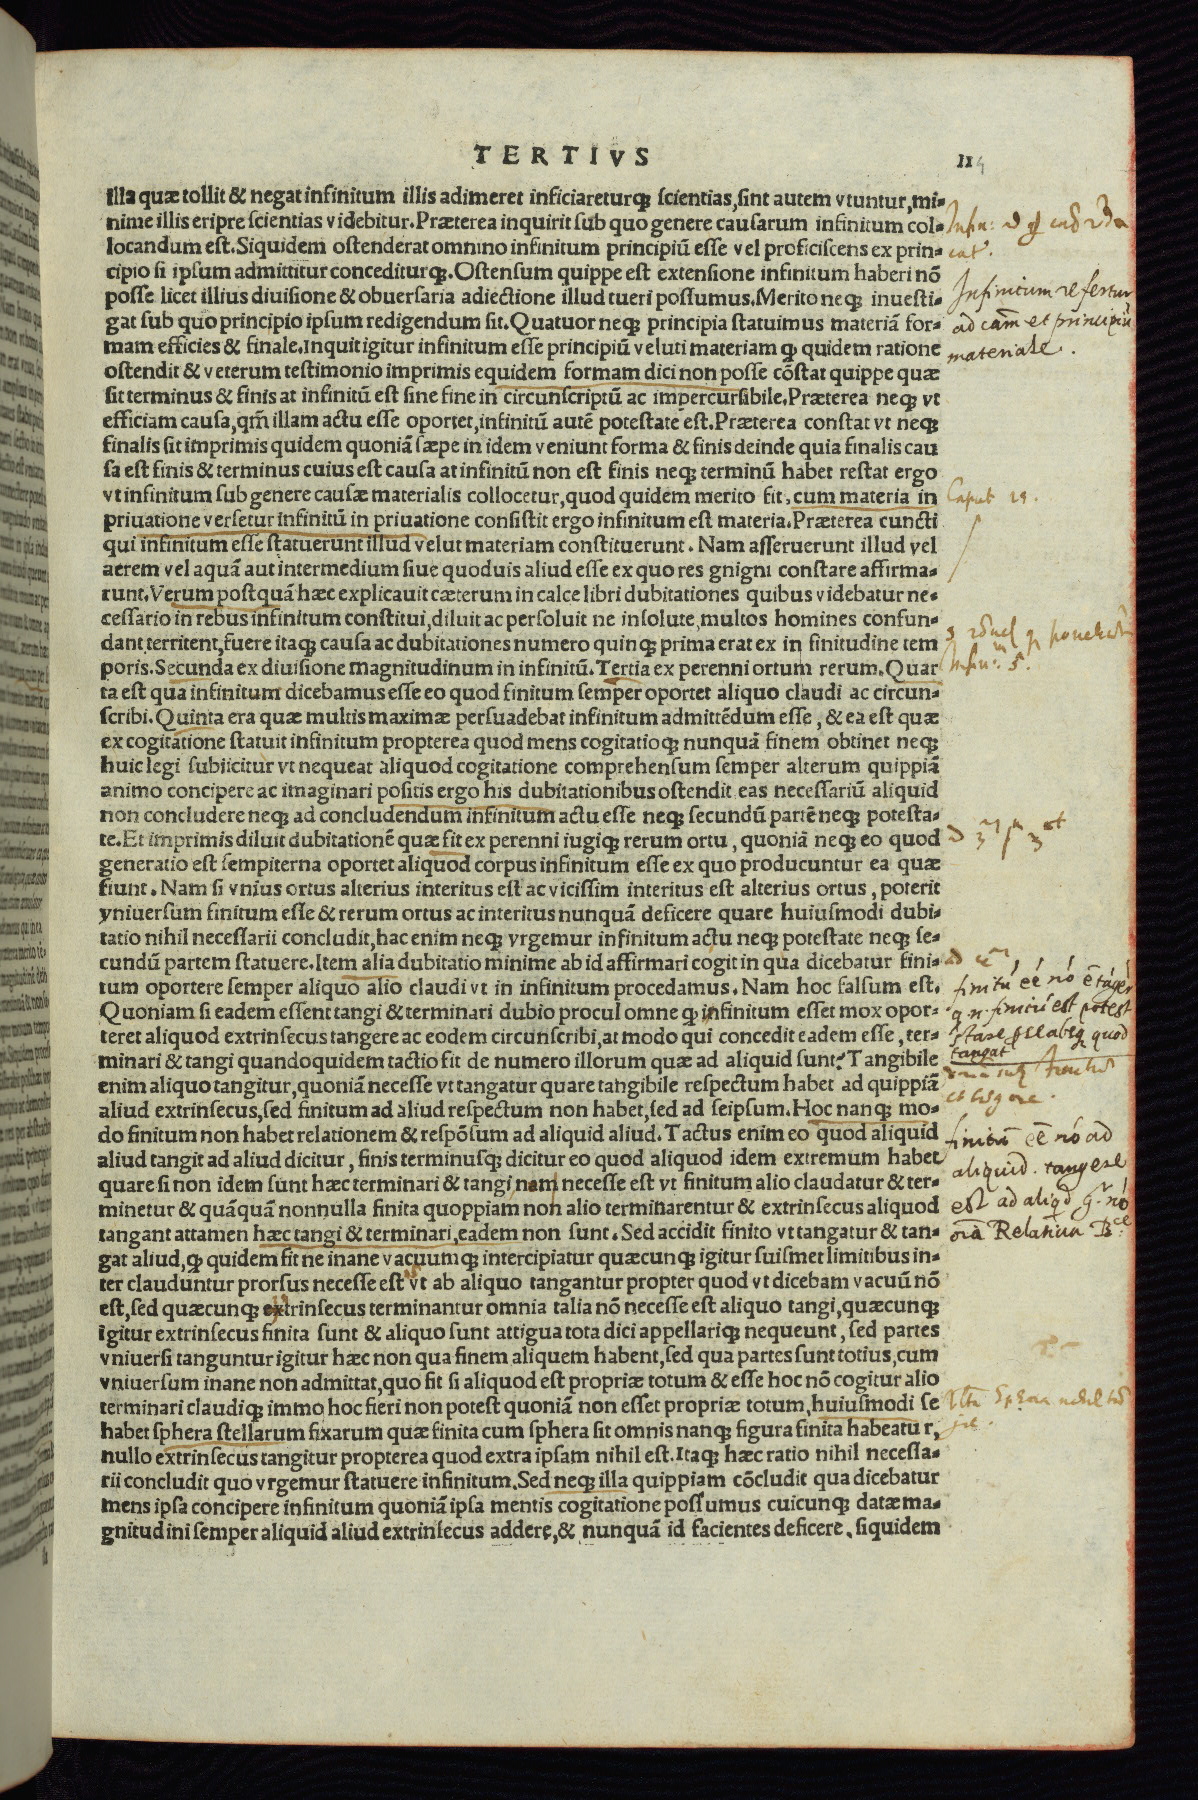 TERTIVS
114
illa quæ tollit & negat infinitum illis adimeret inficiareturqꝫ scientias, sint autem vtuntur, mi-
nime illis eripre scientias videbitur. Præterea inquirit sub quo genere causarum infinitum col-
locandum est. Siquidem ostenderat omnino infinitum principiũ esse vel proficiscens ex prin-
cipio si ipsum admittitur concediturqꝫ. Ostensum quippe est extensione infinitum haberi nõ
posse licet illius diuisione & obuersaria adiectione illud tueri possumus. Merito neqꝫ inuesti-
gat sub quo principio ipsum redigendum sit. Quatuor neqꝫ principia statuimus materiã for-
mam efficies & finale. Inquit igitur infinitum esse principiũ veluti materiam ꝙ quidem ratione
ostendit & veterum testimonio imprimis equidem formam dici non posse cõstat quippe quæ
sit terminus & finis at infinitũ est sine fine in circunscriptũ ac impercursibile. Præterea neqꝫ vt
efficiam causa, qm̃ illam actu esse oportet, infinitũ autẽ potestate est. Præterea constat vt neqꝫ
finalis sit imprimis quidem quoniã sæpe in idem veniunt forma & finis deinde quia finalis cau
sa est finis & terminus cuius est causa at infinitũ non est finis neqꝫ terminũ habet restat ergo
vt infinitum sub genere causæ materialis collocetur, quod quidem merito fit, cum materia in
priuatione versetur infinitũ in priuatione consistit ergo infinitum est materia. Præterea cuncti
qui infinitum esse statuerunt illud velut materiam constituerunt. Nam asseruerunt illud vel
aerem vel aquã aut intermedium siue quoduis aliud esse ex quo res gnigni constare affirma-
runt. Verum postquã hæc explicauit cæterum in calce libri dubitationes quibus videbatur ne-
cessario in rebus infinitum constitui, diluit ac persoluit ne insolute, multos homines confun-
dant territent, fuere itaqꝫ causa ac dubitationes numero quinqꝫ prima erat ex in finitudine tem
poris. Secunda ex diuisione magnitudinum in infinitũ. Tertia ex perenni ortum rerum. Quar
ta est qua infinitum dicebamus esse eo quod finitum semper oportet aliquo claudi ac circun-
scribi. Quinta era quæ multis maximæ persuadebat infinitum admittẽdum esse, & ea est quæ
ex cogitatione statuit infinitum propterea quod mens cogitatioqꝫ nunquã finem obtinet neqꝫ
huic legi subiicitur vt nequeat aliquod cogitatione comprehensum semper alterum quippiã
animo concipere ac imaginari positis ergo his dubitationibus ostendit eas necessariũ aliquid
non concludere neqꝫ ad concludendum infinitum actu esse neqꝫ secundũ partẽ neqꝫ potesta-
te. Et imprimis diluit dubitationẽ quæ fit ex perenni iugiqꝫ rerum ortu, quoniã neqꝫ eo quod
generatio est sempiterna oportet aliquod corpus infinitum esse ex quo producuntur ea quæ
fiunt. Nam si vnius ortus alterius interitus est ac vicissim interitus est alterius ortus, poterit
vniuersum finitum esse & rerum ortus ac interitus nunquã deficere quare huiusmodi dubi-
tatio nihil necessarii concludit, hac enim neqꝫ vrgemur infinitum actu neqꝫ potestate neqꝫ se-
cundũ partem statuere. Item alia dubitatio minime ab id affirmari cogit in qua dicebatur fini-
tum oportere semper aliquo alio claudi vt in infinitum procedamus. Nam hoc falsum est.
Quoniam si eadem essent tangi & terminari dubio procul omne ꝙ infinitum esset mox opor-
teret aliquod extrinsecus tangere ac eodem circunscribi, at modo qui concedit eadem esse, ter-
minari & tangi quandoquidem tactio fit de numero illorum quæ ad aliquid sunt? Tangibile
enim aliquo tangitur, quoniã necesse vt tangatur quare tangibile respectum habet ad quippiã
aliud extrinsecus, sed finitum ad aliud respectum non habet, sed ad seipsum. Hoc nanqꝫ mo-
do finitum non habet relationem & respõsum ad aliquid aliud. Tactus enim eo quod aliquid
aliud tangit ad aliud dicitur, finis terminusqꝫ dicitur eo quod aliquod idem extremum habet
quare si non idem sunt hæc terminari & tangi nam necesse est vt finitum alio claudatur & ter-
minetur & quãquã nonnulla finita quoppiam non alio terminarentur & extrinsecus aliquod
tangant attamen hæc tangi & terminari, eadem non sunt. Sed accidit finito vt tangatur & tan-
gat aliud, ꝙ quidem fit ne inane vacuumqꝫ intercipiatur quæcunqꝫ igitur suismet limitibus in-
ter clauduntur prorsus necesse est vt ab aliquo tangantur propter quod vt dicebam vacuũ nõ
est, sed quæcunqꝫ extrinsecus terminantur omnia talia nõ necesse est aliquo tangi, quæcunqꝫ
igitur extrinsecus finita sunt & aliquo sunt attigua tota dici appellariqꝫ nequeunt, sed partes
vniuersi tanguntur igitur hæc non qua finem aliquem habent, sed qua partes sunt totius, cum
vniuersum inane non admittat, quo fit si aliquod est propriæ totum & esse hoc nõ cogitur alio
terminari claudiqꝫ immo hoc fieri non potest quoniã non esset propriæ totum, huiusmodi se
habet sphera stellarum fixarum quæ finita cum sphera sit omnis nanqꝫ figura finita habeatur,
nullo extrinsecus tangitur propterea quod extra ipsam nihil est. Itaqꝫ hæc ratio nihil necessa-
rii concludit quo vrgemur statuere infinitum. Sed neqꝫ illa quippiam cõcludit qua dicebatur
mens ipsa concipere infinitum quoniã ipsa mentis cogitatione possumus cuicunqꝫ datæ ma-
gnitudini semper aliquid aliud extrinsecus addere, & nunquã id facientes deficere. siquidem
Infinitum refertur
ad cãm et principiũ
materiale.
Caput 29.
finitũ eẽ nõ ad
aliquid. tangere
est ad aliqd